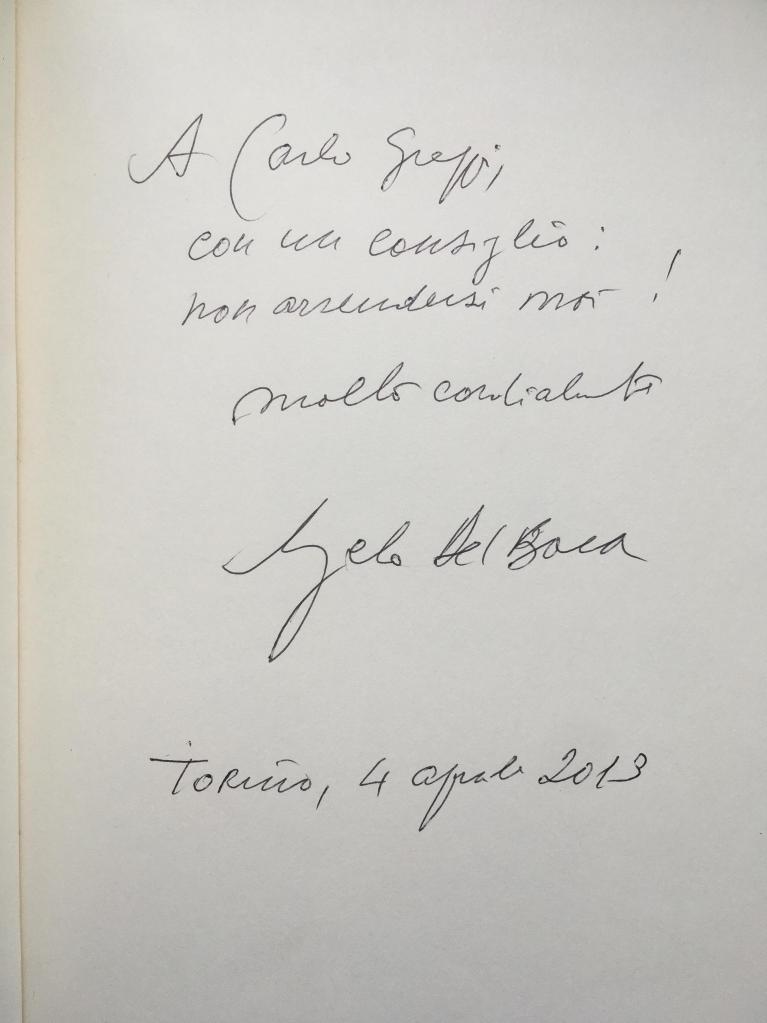 A Carlo Greppi,
con un consiglio:
non arrendersi mai!
molto cordialmente
Angelo Del Boca
Torino, 4 aprile 2013